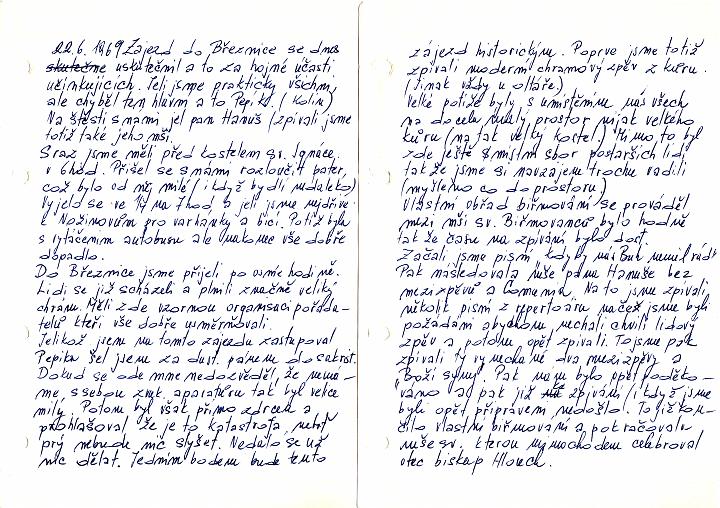 22.6.1969 Zájezd do Březnice se dnes
skutečně uskutečnil a to za hojné účasti
účinkujících. Jeli jsme prakticky všichni,
ale chyběl ten hlavní a to Pepík. (Kolín)
Na štěstí s námi jel pan Hanuš (zpívali jsme
totiž také jeho mši.
Sraz jsme měli před kostelem sv. Ignáce
v 6 hod. Přišel se s námi rozloučit páter,
což bylo od něj milé (i když bydlí nedaleko)
Vyjelo se ve na 7 hod a jeli jsme nejdříve
k Nožinovům pro varhánky a bicí. Potíž byla
s vytáčením autobusu ale nakonec vše dobře
dopadlo.
Do Březnice jsme přijeli po osmé hodině.
Lidi se již scházeli a plnili značně veliký
chrám. Měli zde vzornou organisaci pořada-
telů kteří vše dobře usměrňovali.
Jelikož jsem na tomto zájezdu zastupoval
Pepíka šel jsem za důst. pánem do sakrist.
Dokud se ode mne nedozvěděl, že nemá-
me, s sebou zvuk. aparaturu tak byl velice
milý. Potom byl však přímo zdrcen a
prohlašoval že je to katastrofa, neboť
prý nebude nic slyšet. Nedalo se už
nic dělat. Jedním bodem bude tento
zájezd historickým. Poprvé jsme totiž
zpívali moderní chrámový zpěv z kůru.
(Jinak vždy u oltáře.)
Velké potíže byly s umístěním nás všech
na docela malý prostor nijak velkého
kůru (na tak velký kostel). Mimo to byl
zde ještě místní sbor postarších lidí
takže jsme si navzájem trochu vadili
(myšleno co do prostoru)
Vlastní obřad biřmování se prováděl
mezi mší sv. Biřmovanců bylo hodně
tak že času na zpívání bylo dost.
Začali jsme písní "kdyby nás Bůh neměl rád"
Pak následovala mše pana Hanuše bez
mezizpěvů a Comunia. Na to jsme zpívali
několik písní z repertoáru načež jsme byli
požádáni abychom, nechali chvíli lidový
zpěv a potom, opět zpívali. To jsme pak
zpívali ty vynechané dva mezizpěvy a
"Boží synu". Pak nám bylo opět poděko-
váno a pak již zpívání (i když jsme
byli opět připraveni, nedošlo. To již kon-
čilo vlastní biřmování a pokračovala
mše sv. kterou mimochodem celebroval
otec biskup Hlouch.